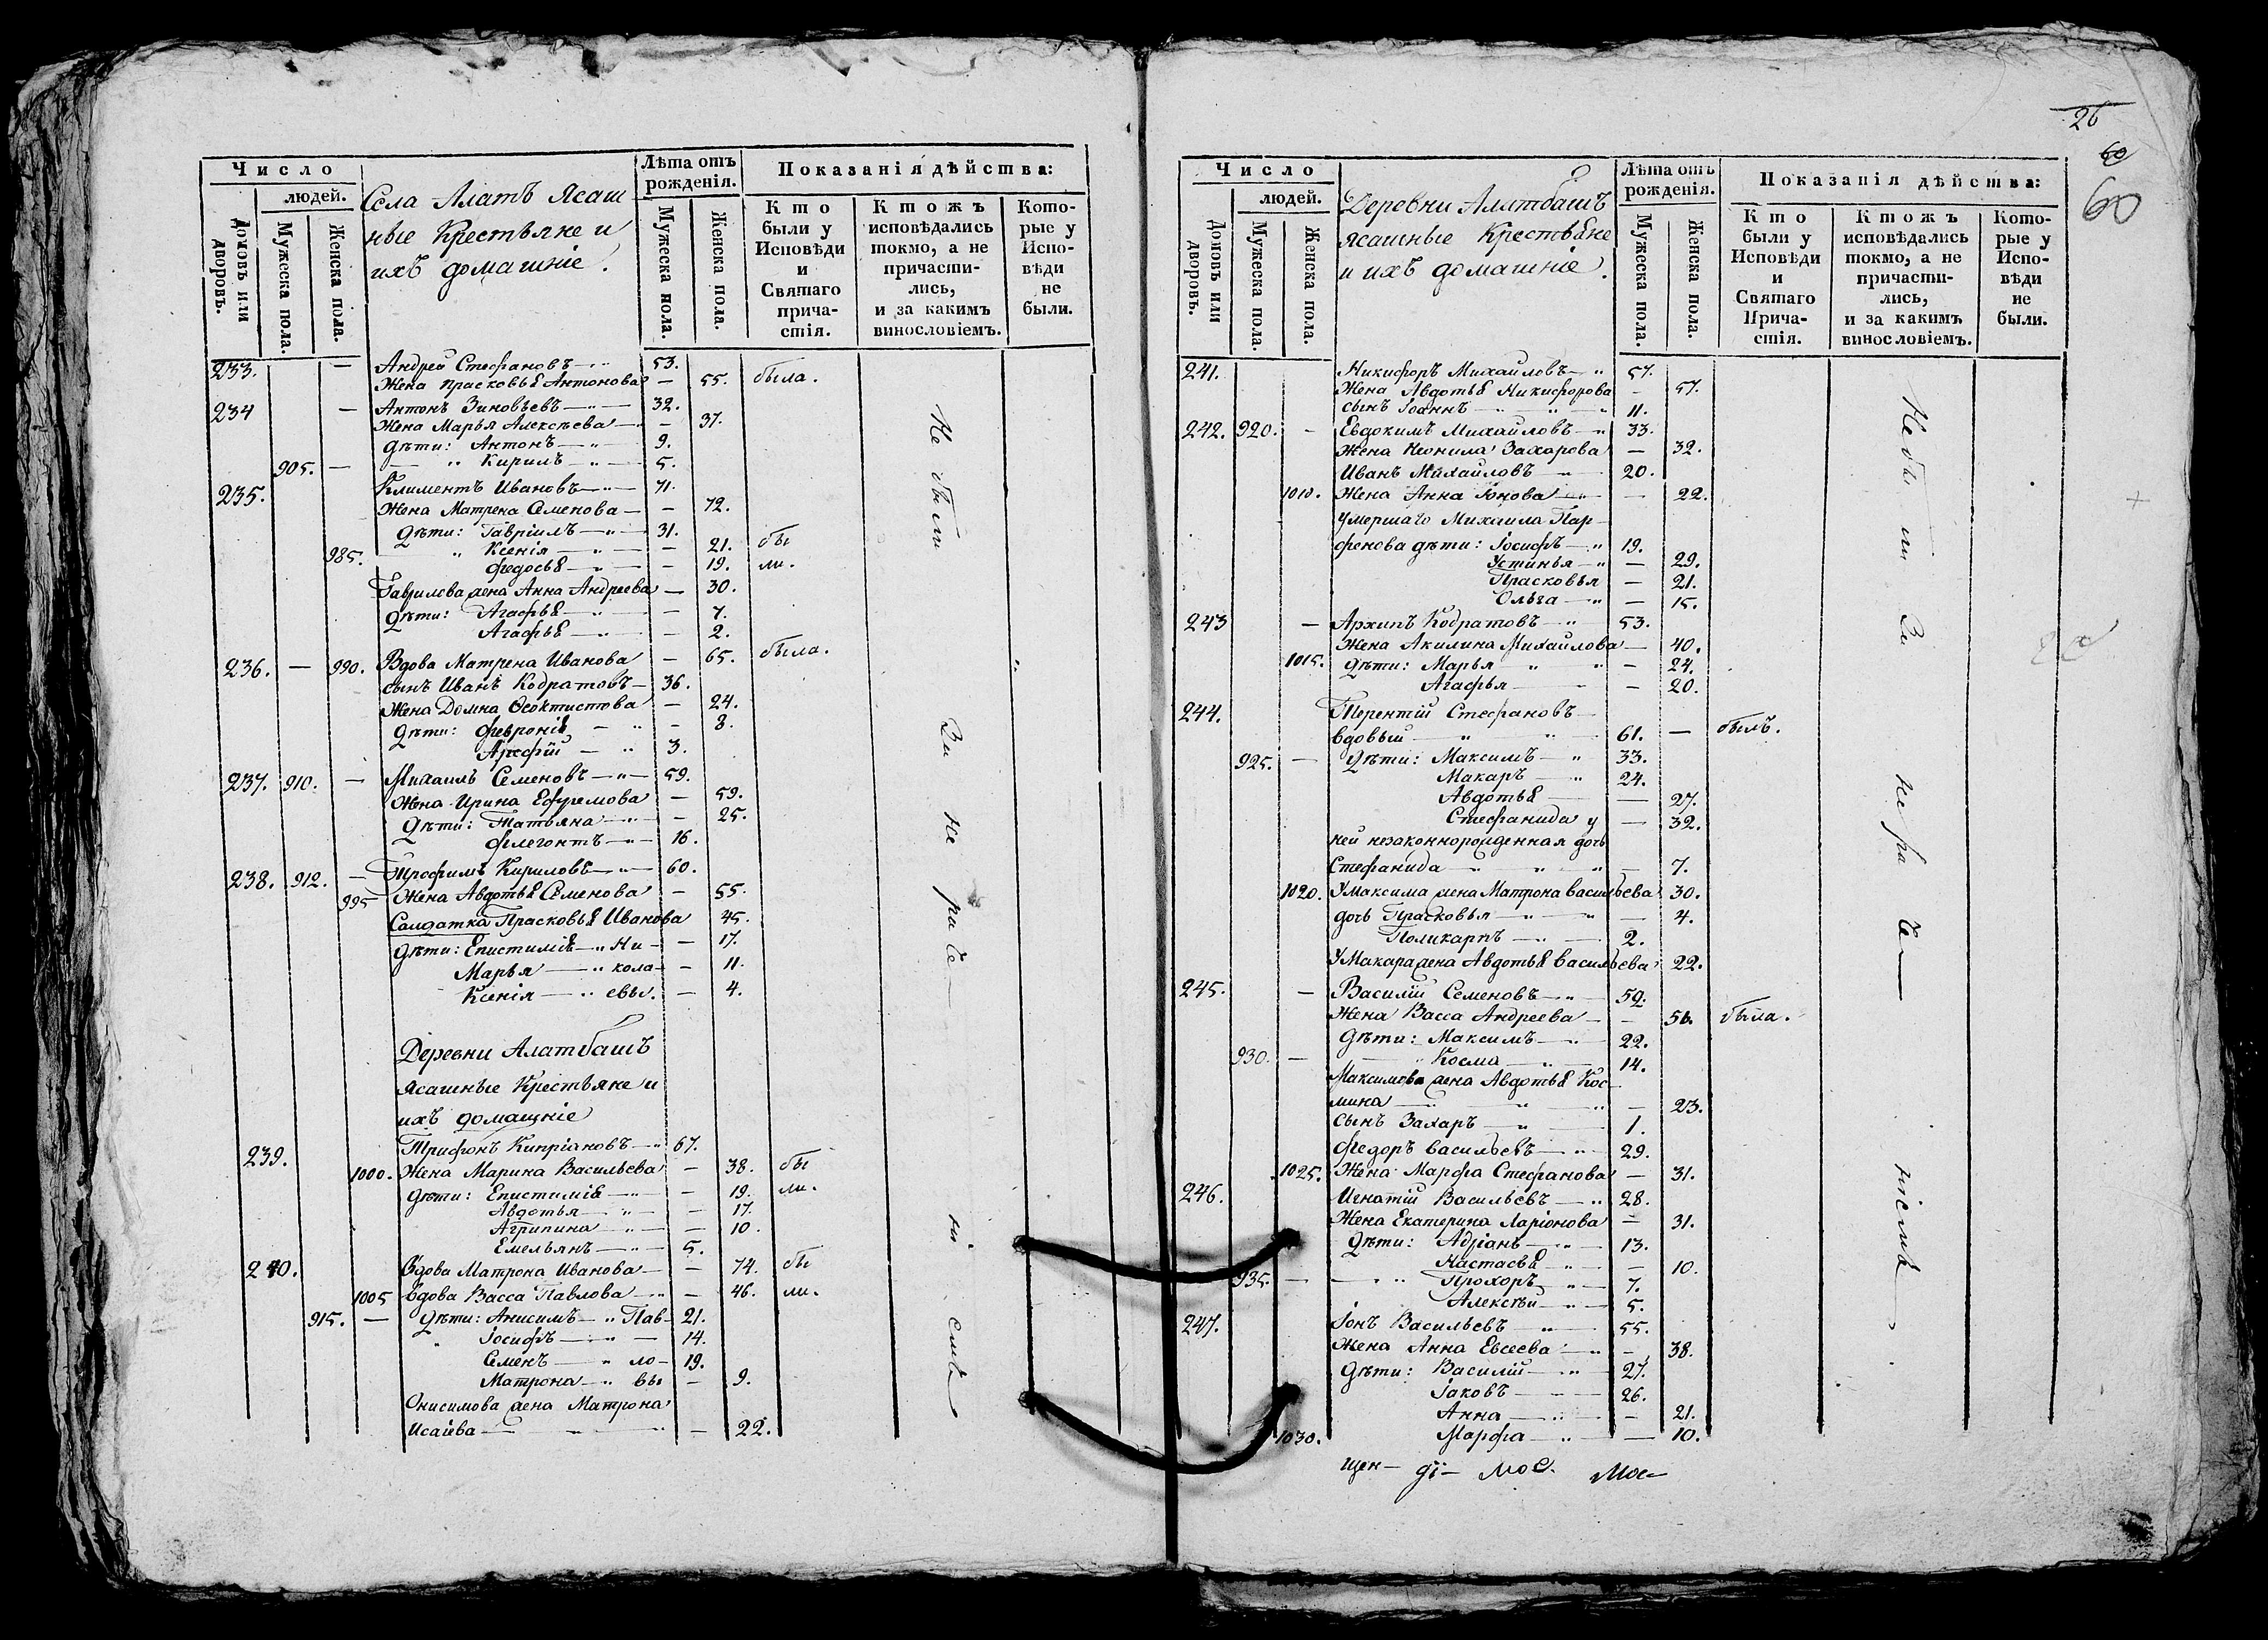 Число
людей.
Домовъ или дворовъ.
Мужеска пола.
Женска пола.
Села Алатъ Ясаш
ные Крестьяне и
ихъ домашніе.
Лѣта отъ рожденія.
Мужеска пола.
Женска пола.
Показанія дѣйства:
Кто были у Исповѣди и Святаго причастія.
Ктожъ исповѣдались токмо, а не причастились, и за какимъ винословіемъ.
Которые у Исповѣди не были.
233. — Андрей Стефановъ 53.
Жена Прасковья Антонова — 55. была.
234 — Антонъ Зиновьевъ — 32.
Жена Марья Алексѣева — 37.
Дѣти: Антонъ — 9.
905. — Кирилъ — 5.
235. Климентъ Ивановъ — 71.
Жена Матрена Семенова — 72.
Дѣти: Гавріилъ — 31.
985. Ксенія — 21. бы
Федосья — 19. ли.
Гаврилова жена Анна Андреева — 30.
Дѣти: Агафья — 7.
Агафья — 2.
236. — 990. Вдова Матрена Иванова — 65. была.
сынъ Иванъ Кодратовъ — 36.
Жена Домна Феоктистова — 24.
Дѣти: Февронія — 8.
Арефій — 3.
237. 910. — Михаилъ Семеновъ — 59.
Жена Ирина Ефремова — 59.
Дѣти: Татьяна — 25.
Флегонтъ — 16.
238. 912. — Трофимъ Кириловъ — 60.
995 Жена Авдотья Семенова — 55.
Солдатка Прасковья Иванова 45.
Дѣти: Епистимія — Ни — 17.
Марья — кола — 11.
Ксенія — евы. — 4.
Деревни Алатбашъ
ясашные Крестьяне и
ихъ домашніе
239. Трифонъ Кипріановъ — 67.
1000. Жена Марина Васильева — 38. бы
Дѣти: Епистимія — 19. ли.
Авдотья — 17.
Агрипина — 10.
Емельянъ — 5.
240. Вдова Матрона Иванова — 74. бы
1005 Вдова Васса Павлова — 46. ли.
915. — Дѣти: Анисимъ — Пав — 21.
Іосифъ — 14.
Семенъ — ло — 19.
Матрона — вы — 9.
Онисимова жена Матрона
Исаіева — 22.
Не были За не раче ні емъ
26
60
60
Число
людей.
Домовъ или дворовъ.
Мужеска пола.
Женска пола.
Деревни Алатбашъ
ясашные Крестьяне
и ихъ домашніе.
Лѣта отъ рожденія.
Мужеска пола.
Женска пола.
Показанія дѣйства:
Кто были у Исповѣди и Святаго Причастія.
Ктожъ исповѣдались токмо, а не причастились, и за какимъ винословіемъ.
Которые у Исповѣди не были.
241. Никифоръ Михайловъ 57.
Жена Авдотья Никифорова — 57.
сынъ Іоаннъ — 11.
242. 920. — Евдокимъ Михайловъ 33.
Жена Неонила Захарова — 32.
Иванъ Михайловъ — 20.
1010. Жена Анна Іонова — 22.
умершаго Михаила Пар
фенова дѣти: Іосифъ — 19.
Устинья — 29.
Прасковья — 21.
Ольга — 15.
243 — Архипъ Кодратовъ 53.
Жена Акилина Михайлова — 40.
1015. Дѣти: Марья — 24.
Агафья — 20.
244. Терентій Стефановъ
вдовый — 61. — былъ.
925. — Дѣти: Максимъ — 33.
Макаръ — 24.
Авдотья — 27.
Стефанида у — 32.
ней незаконнорожденная дочь
Стефанида — 7.
1020. У Максима жена Матрона Васильева 30.
дочь Прасковья — 4.
Поликарпъ — 2.
У Макара жена Авдотья Васильева 22.
245. — Василій Семеновъ — 59.
Жена Васса Андреева — 56. была.
Дѣти: Максимъ — 22.
930. — Косма — 14.
Максимова жена Авдотья Кос
мина — 23.
сынъ Захаръ — 1.
Федоръ Васильевъ — 29.
1025. Жена Марфа Стефанова — 31.
246. Игнатій Васильевъ — 28.
Жена Екатерина Ларіонова — 31.
Дѣти: Адріанъ — 13.
Настасья — 10.
935. — Прохоръ — 7.
Алексѣй — 5.
247. Іонъ Васильевъ — 55.
Жена Анна Евсеева — 38.
Дѣти: Василій — 27.
Іаковъ — 26.
Анна — 21.
1030. Марфа — 10.
Не бы ли За не ра че ніемъ
щен— ді— Мос. Мое—